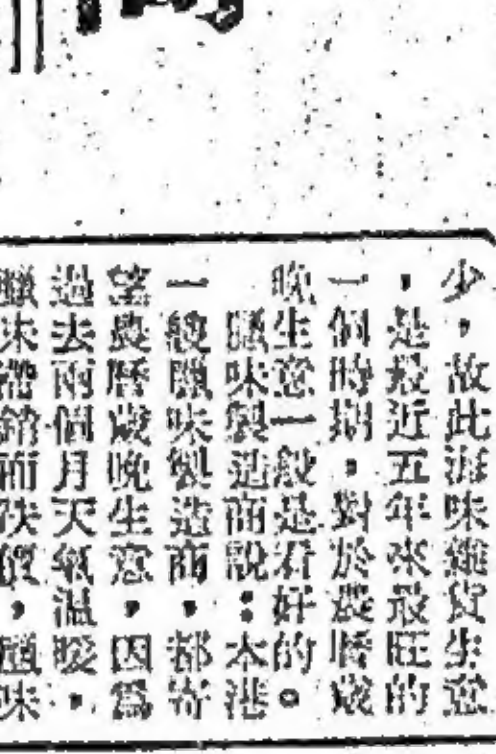 少，故此海味雜貨生意
，是最近五年來最旺的
一個時期，對於農曆歲
晚生意一般是看好的。
臘味製造商說：本港
一般臘味製造商，都寄
望農曆歲晚生意，因爲
過去兩個月天氣溫暖，
臘味滯銷而跌價，臘味